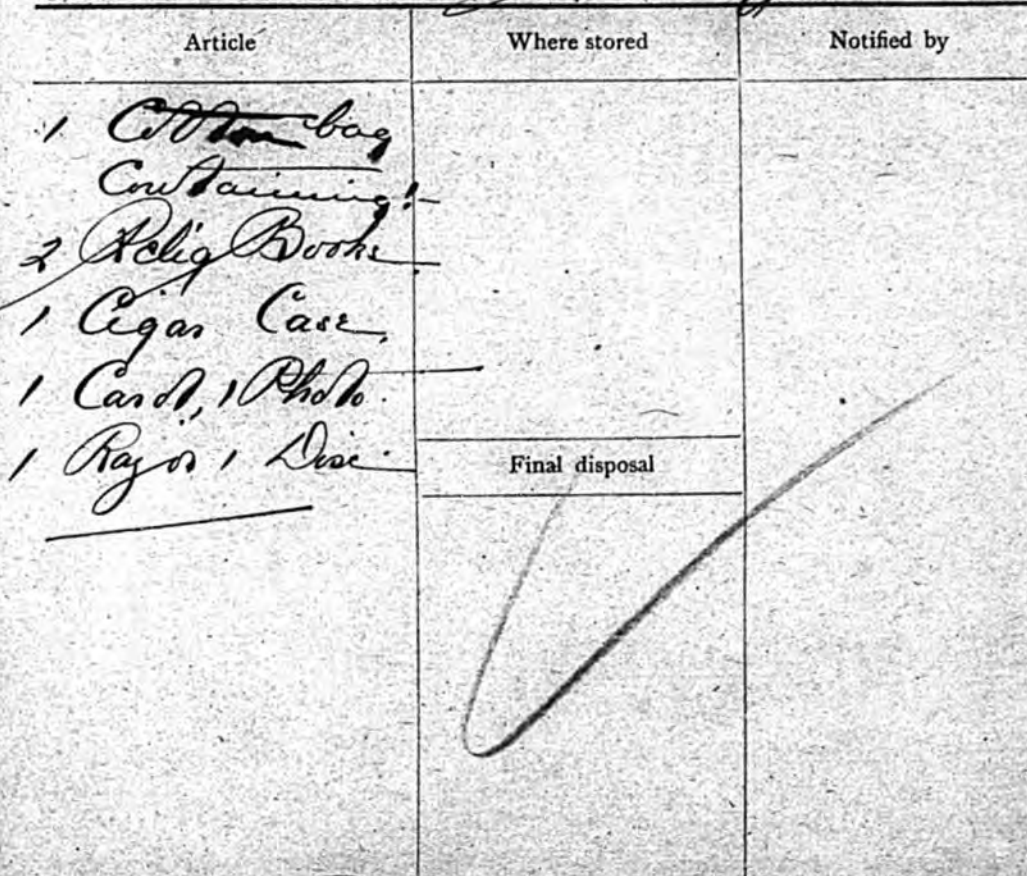 Article Where stored Notified by
1 Cotton bag
Containing:-
2 Relig Books
1 Cigar Case,
1 Card, 1 Photo.
1 Razor 1 Disc
Final disposal